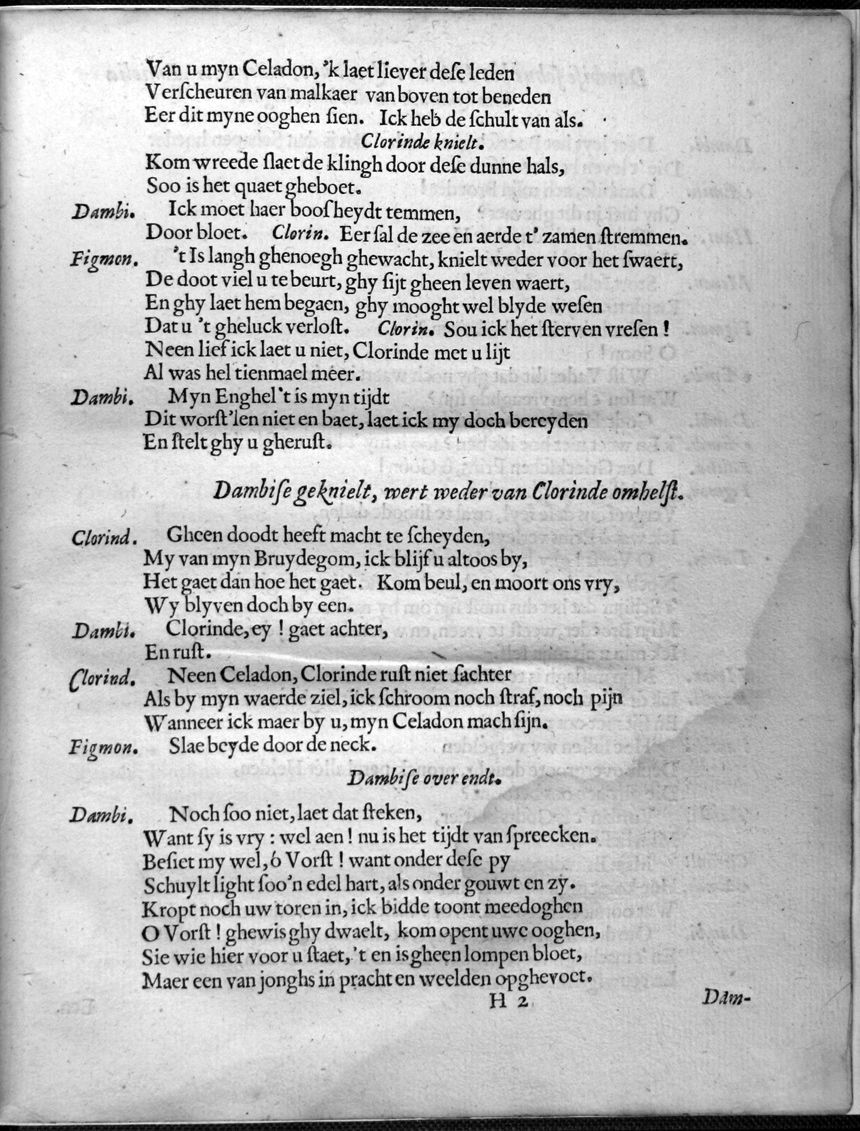 Van u myn Celadon, 'k laet liever deſe leden
Verſcheuren van malkaer van boven tot beneden
Eer dit myne ooghen ſien. Ick heb de ſchult van als.
Clorinde knielt.
Kom wreede ſlaet de klingh door deſe dunne hals,
Soo is het quaet gheboet.
Dambi. Ick moet haer booſheydt temmen,
Door bloet. Clorin. Eer ſal de zee en aerde t' zamen ſtremmen.
Figmon. 't Is langh ghenoegh ghewacht, knielt weder voor het ſwaert,
De doot viel u te beurt, ghy ſijt gheen leven waert,
En ghy laet hem begaen, ghy mooght wel blyde weſen
Dat u 't gheluck verloſt. Clorin. Sou ick het ſterven vreſen !
Neen lief ick laet u niet, Clorinde met u lijt
Al was hel tienmael meer.
Dambi. Myn Enghel 't is myn tijdt
Dit worſt'len niet en baet, laet ick my doch bereyden
En ſtelt ghy u gheruſt.
Dambiſe geknielt, wert weder van Clorinde omhelſt.
Clorind. Gheen doodt heeft macht te ſcheyden,
My van myn Bruydegom, ick blijf u altoos by,
Het gaet dan hoe het gaet. Kom beul, en moort ons vry,
Wy blyven doch by een.
Dambi. Clorinde, ey ! gaet achter,
En ruſt.
Clorind. Neen Celadon, Clorinde ruſt niet ſachter
Als by myn waerde ziel, ick ſchroom noch ſtraf, noch pijn
Wanneer ick maer by u, myn Celadon mach ſijn.
Figmon. Slae beyde door de neck.
Dambiſe over endt.
Dambi. Noch ſoo niet, laet dat ſteken,
Want ſy is vry : wel aen ! nu is het tijdt van ſpreecken.
Beſiet my wel, ô Vorſt ! want onder deſe py
Schuylt light ſoo'n edel hart, als onder gouwt en zy.
Kropt noch uw toren in, ick bidde toont meedoghen
O Vorſt ! ghewis ghy dwaelt, kom opent uwe ooghen,
Sie wie hier voor u ſtaet, 't en is gheen lompen bloet,
Maer een van jonghs in pracht en weelden opghevoet.
H 2 Dam-